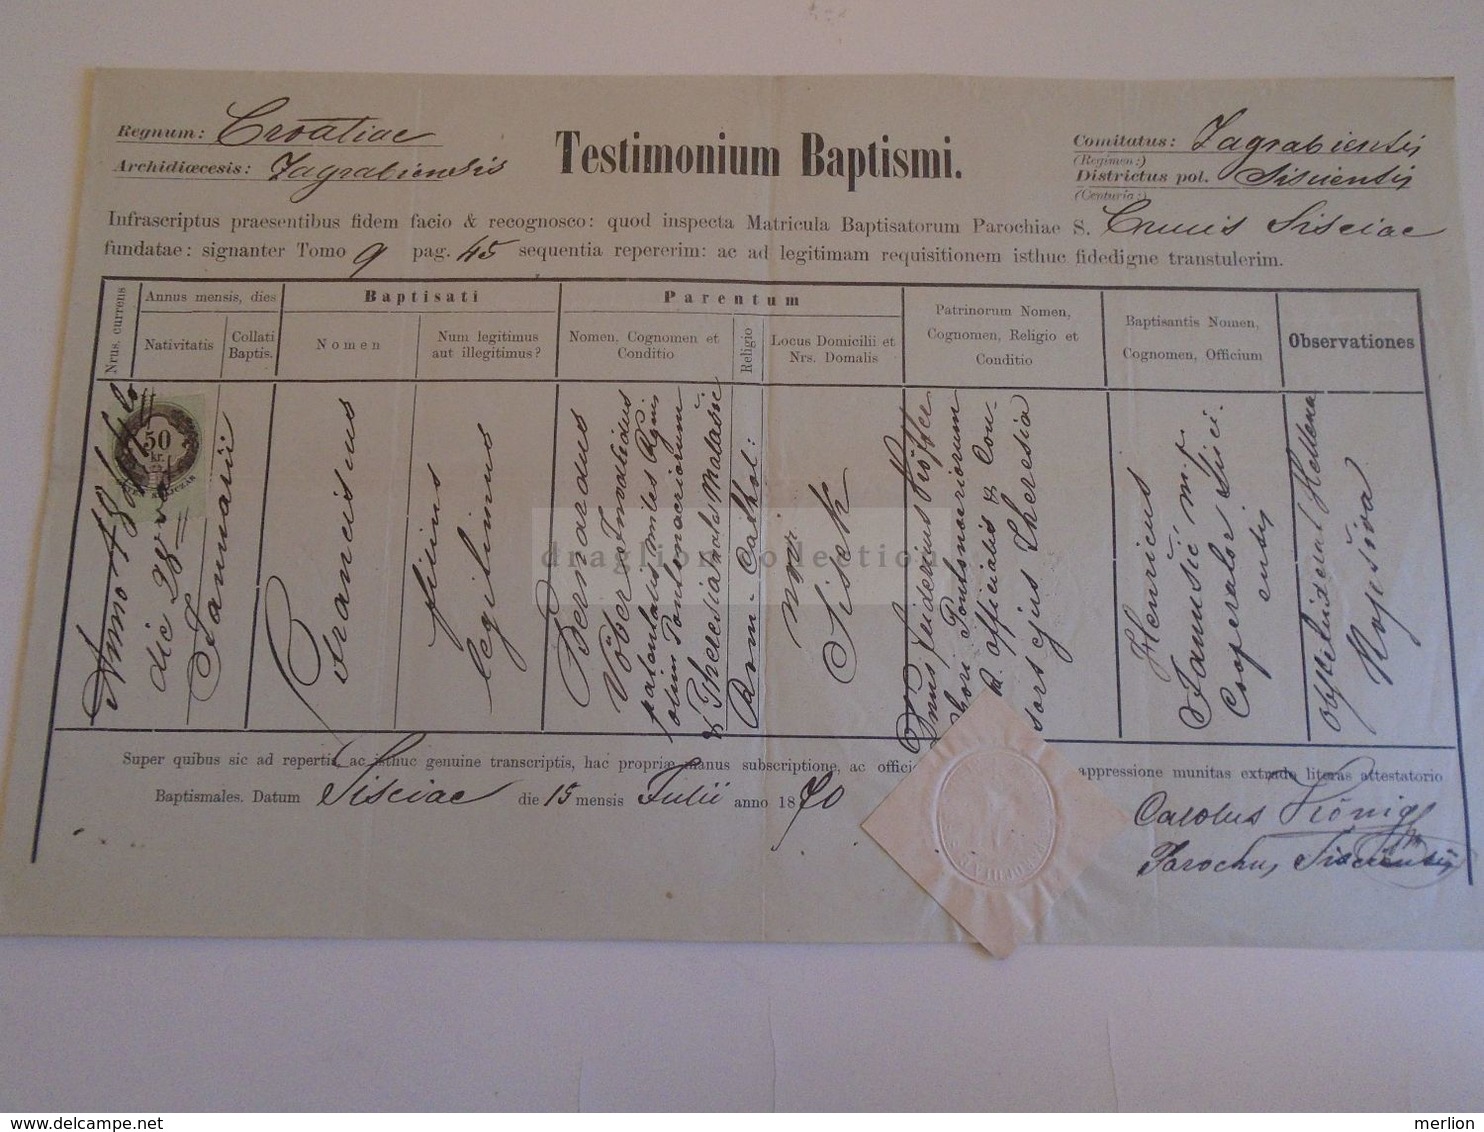 Regnum: Croatiae
Archidiœcesis: Zagrabiensis
Testimonium Baptismi.
Comitatus: Zagrabiensis
(Regimen:)
Districtus pol. Sisciensis
(Centuria:)
Infrascriptus praesentibus fidem facio & recognosco: quod inspecta Matricula Baptisatorum Parochiae S. Crucis Sisciae
fundatae: signanter Tomo 9 pag. 45 sequentia repererim: ac ad legitimam requisitionem isthuc fidedigne transtulerim.
Nrus. currens
Annus mensis, dies
Nativitatis
Collati
Baptis.
Baptisati
Nomen
Num legitimus
aut illegitimus?
Parentum
Nomen, Cognomen et
Conditio
Religio
Locus Domicilii et
Nrs. Domalis
Patrinorum Nomen,
Cognomen, Religio et
Conditio
Baptisantis Nomen,
Cognomen, Officium
Observationes
Anno
die 28
Januarii
50
kr.
Franciscus
filius
legitimus
Bernardus
Vöber Invalidus
patentalis miles
olim Pontonariorum
& Theresia nata
Rom. Cathol:
Sisek
Pontonariorum
officialis & Con-
sors ejus Theresia
Henricus
Janušić m.p.
Cooperator Sisci-
ensis
obstetrix Hellena
draglion collection
Super quibus sic ad repertis, ac isthuc genuine transcriptis, hac propriæ manus subscriptione, ac offici appressione munitas extrado literas attestatorio
Baptismales. Datum Sisciae die 15 mensis Julii anno 1870
Carolus König
Parochus Sisciensis
merlion